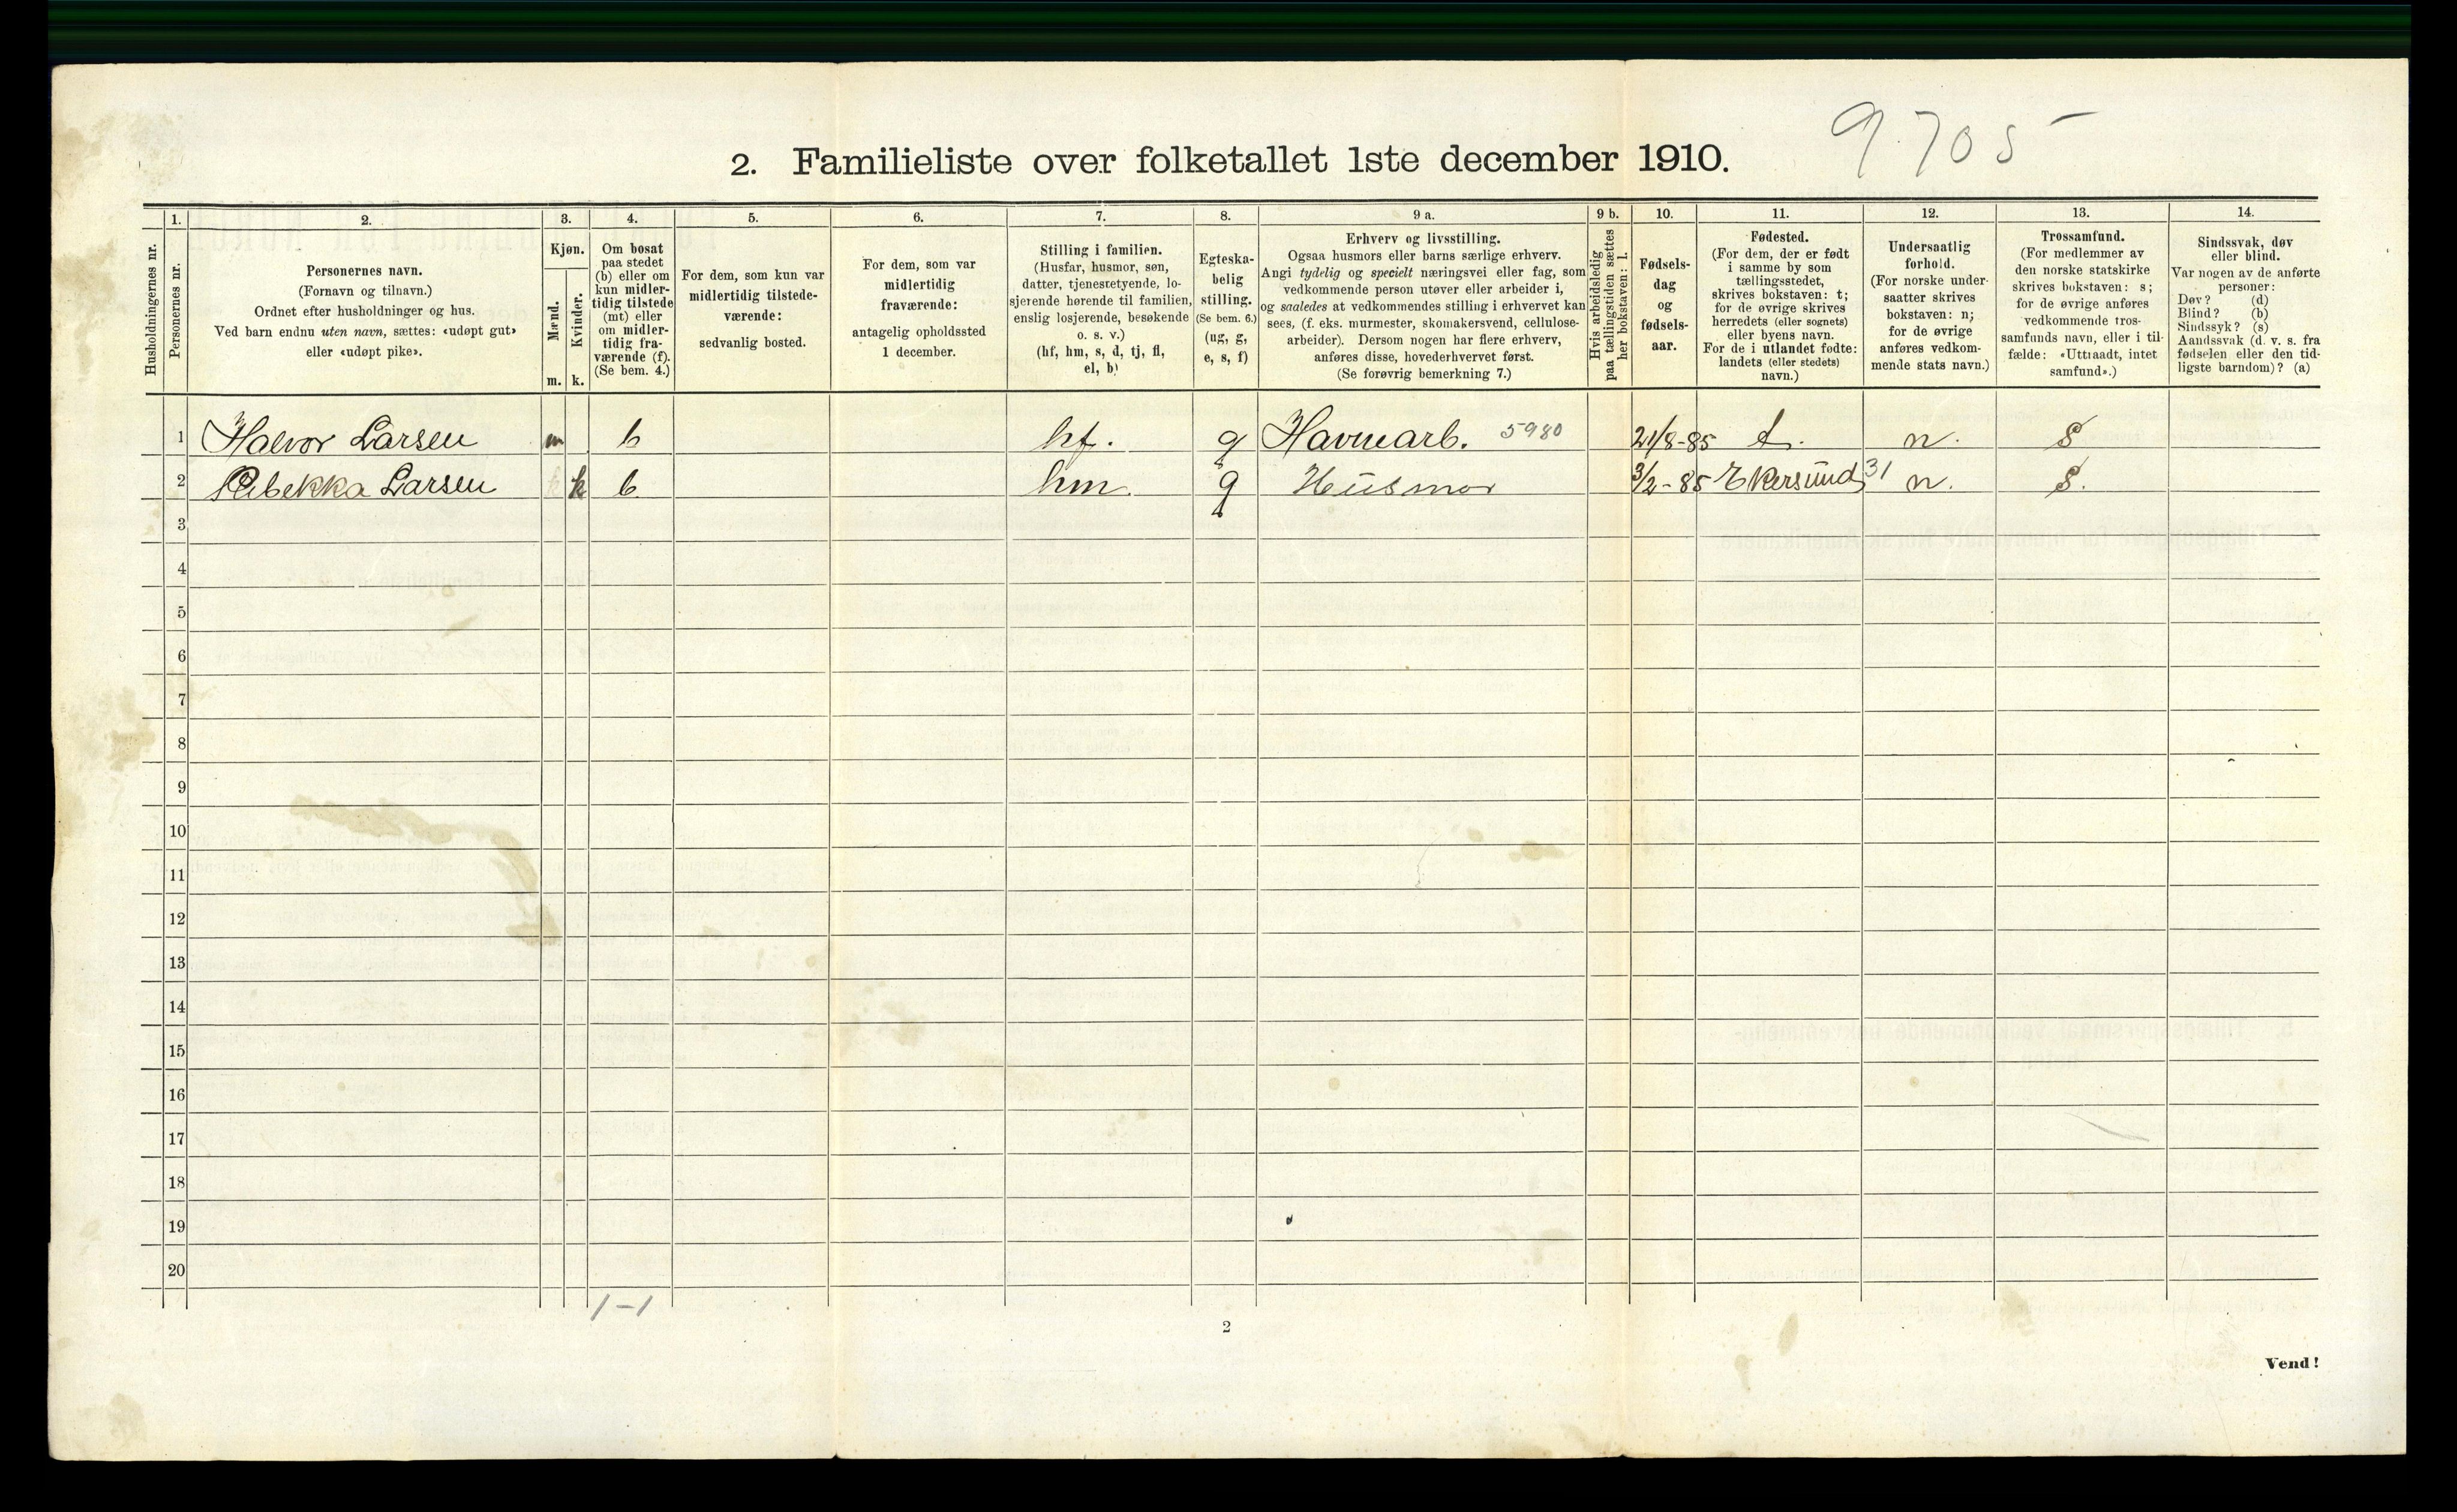 9.705
2. Familieliste over folketallet 1ste december 1910.
Husholdningernes nr.
1.
Personernes nr.
2.
Personernes navn.
(Fornavn og tilnavn.)
Ordnet efter husholdninger og hus.
Ved barn endnu uten navn, sættes: «udøpt gut»
eller «udøpt pike».
3.
Kjøn.
Mænd.
Kvinder.
m.
k.
4.
Om bosat
paa stedet
(b) eller om
kun midler-
tidig tilstede
(mt) eller
om midler-
tidig fra-
værende (f).
(Se bem. 4.)
5.
For dem, som kun var
midlertidig tilstede-
værende:
sedvanlig bosted.
6.
For dem, som var
midlertidig
fraværende:
antagelig opholdssted
1 december.
7.
Stilling i familien.
(Husfar, husmor, søn,
datter, tjenestetyende, lo-
sjerende hørende til familien,
enslig losjerende, besøkende
o. s. v.)
(hf, hm, s, d, tj, fl,
el, b)
8.
Egteska-
belig
stilling.
(Se bem. 6.)
(ug, g,
e, s, f)
9 a.
Erhverv og livsstilling.
Ogsaa husmors eller barns særlige erhverv.
Angi tydelig og specielt næringsvei eller fag, som
vedkommende person utøver eller arbeider i,
og saaledes at vedkommendes stilling i erhvervet kan
sees, (f. eks. murmester, skomakersvend, cellulose-
arbeider). Dersom nogen har flere erhverv,
anføres disse, hovederhvervet først.
(Se forøvrig bemerkning 7.)
9 b.
Hvis arbeidsledig
paa tællingstiden sættes
her bokstaven: l.
10.
Fødsels-
dag
og
fødsels-
aar.
11.
Fødested.
(For dem, der er født
i samme by som
tællingsstedet,
skrives bokstaven: t;
for de øvrige skrives
herredets (eller sognets)
eller byens navn.
For de i utlandet fødte:
landets (eller stedets)
navn.)
12.
Undersaatlig
forhold.
(For norske under-
saatter skrives
bokstaven: n;
for de øvrige
anføres vedkom-
mende stats navn.)
13.
Trossamfund.
(For medlemmer av
den norske statskirke
skrives bokstaven: s;
for de øvrige anføres
vedkommende tros-
samfunds navn, eller i til-
fælde: «Uttraadt, intet
samfund».)
14.
Sindssvak, døv
eller blind.
Var nogen av de anførte
personer:
Døv? (d)
Blind? (b)
Sindssyk? (s)
Aandssvak (d. v. s. fra
fødselen eller den tid-
ligste barndom)? (a)
1 Halvor Larsen m b hf. g Havnearb. 5980 21/8-85 t. n. S
2 Rebekka Larsen k k b hm. g Husmor 3/2-85 Ekersund 31 n. S.
3
4
5
6
7
8
9
10
11
12
13
14
15
16
17
18
19
20
1-1
2
Vend!